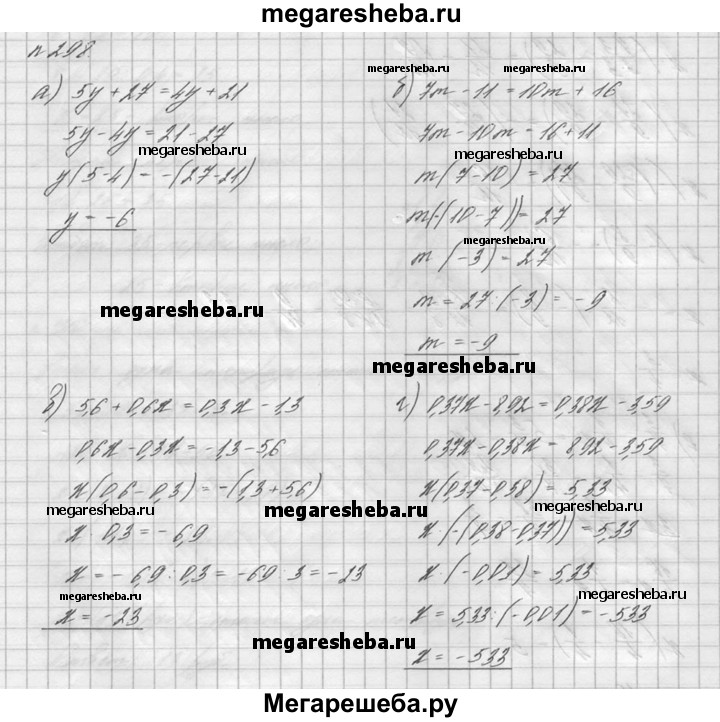 megaresheba.ru
n 298
а) 5y + 27 = 4y + 21
5y - 4y = 21 - 27
megaresheba.ru
y(5-4) = -(27-21)
y = -6
megaresheba.ru
megaresheba.ru megaresheba.ru
б) 7m - 11 = 10m + 16
7m - 10m = 16 + 11
megaresheba.ru
m(7-10) = 27
m(-(10-7)) = 27
megaresheba.ru
m(-3) = 27
m = 27 : (-3) = -9
m = -9
megaresheba.ru
в) 5,6 + 0,6x = 0,3x - 1,3
0,6x - 0,3x = -1,3 - 5,6
x(0,6 - 0,3) = -(1,3 + 5,6)
megaresheba.ru
megaresheba.ru
x · 0,3 = -6,9
x = -6,9 : 0,3 = -69 : 3 = -23
megaresheba.ru
x = -23
megaresheba.ru
г) 0,37x - 8,92 = 0,38x - 3,59
0,37x - 0,38x = 8,92 - 3,59
x(0,37 - 0,38) = 5,33
megaresheba.ru
x(-(0,38 - 0,37)) = 5,33
x(-0,01) = 5,33
megaresheba.ru
x = 5,33 : (-0,01) = -533
x = -533
Мегарешеба.ру